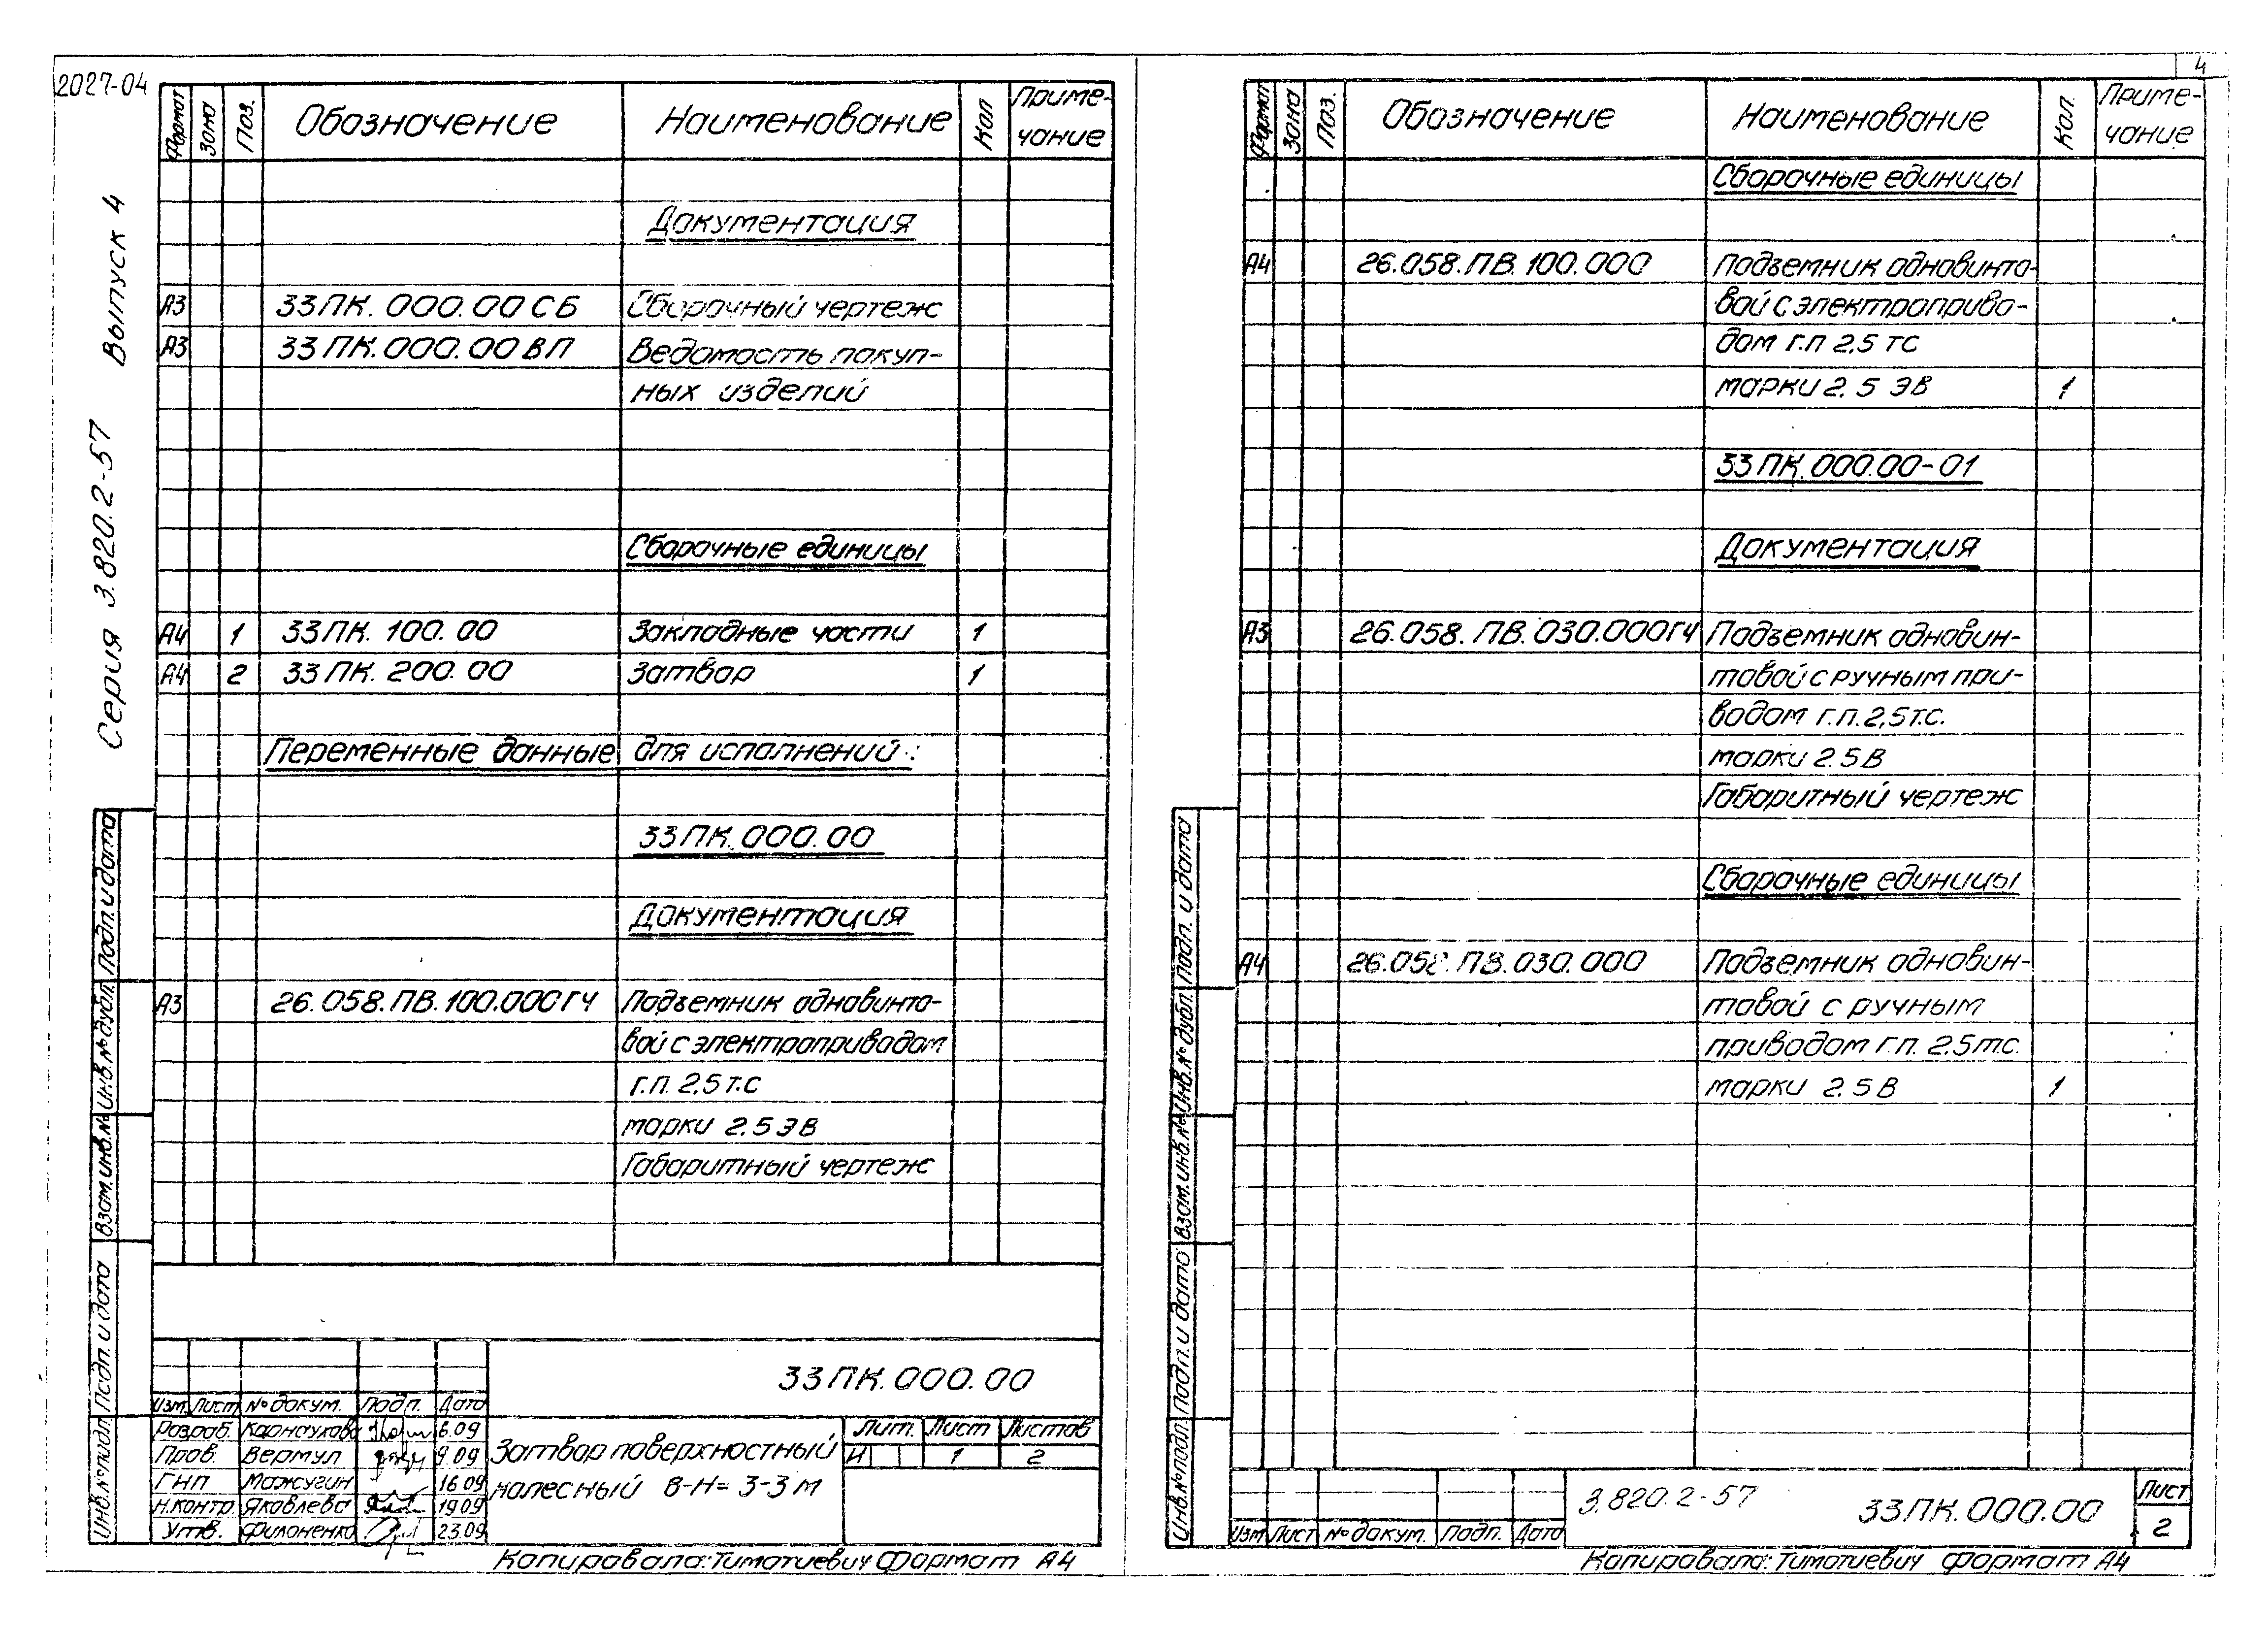 2027-04
Серия 3.820.2-57 Выпуск 4
Формат Зона Поз. Обозначение Наименование Кол Приме-
чание
Документация
А3 33ПК.000.00СБ Сборочный чертеж
А3 33ПК.000.00ВП Ведомость покуп-
ных изделий
Сборочные единицы
А4 1 33ПК.100.00 Закладные части 1
А4 2 33ПК.200.00 Затвор 1
Переменные данные для исполнений:
33ПК.000.00
Документация
А3 26.058.ПВ.100.000ГЧ Подъемник одновинто-
вой с электроприводом
г.п. 2,5 т.с
марки 2.5 ЭВ
Габаритный чертеж
Подп. и дата
Инв.№ дубл.
Взам.инв.№
Подп. и дата
Инв.№ подл.
33ПК.000.00
Изм. Лист № докум. Подп. Дата
Разраб. Карнаухова 6.09
Пров. Вермул 9.09
ГНП Мажугин 16.09
Н.контр. Яковлева 19.09
Утв. Филоненко 23.09
Затвор поверхностный
колесный В-Н= 3-3 м
Лит. Лист Листов
И 1 2
Копировала: Тимотиевич Формат А4
4
Формат Зона Поз. Обозначение Наименование Кол. Приме-
чание
Сборочные единицы
А4 26.058.ПВ.100.000 Подъемник одновинто-
вой с электроприво-
дом г.п 2,5 тс
марки 2.5 ЭВ 1
33ПК.000.00-01
Документация
А3 26.058.ПВ.030.000ГЧ Подъемник одновин-
товой с ручным при-
водом г.п. 2,5т.с.
марки 2.5В
Габаритный чертеж
Сборочные единицы
А4 26.058.ПВ.030.000 Подъемник одновин-
товой с ручным
приводом г.п. 2,5т.с.
марки 2.5В 1
Подп. и дата
Инв.№ дубл.
Взам.инв.№
Подп. и дата
Инв.№ подл.
Изм Лист № докум. Подп. Дата
3.820.2-57 33ПК.000.00
Лист
2
Копировала: Тимотиевич Формат А4